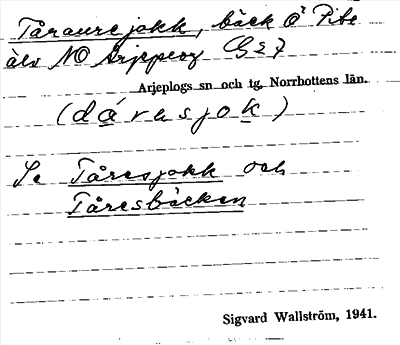 Tåraurejokk, bäck Ö Pite
älv NO Arjeplog G27
Arjeplogs sn och tg, Norrbottens län.
(dáv​rusjok)
Se Tåresjokk och
Tåresbäcken
Sigvard Wallström, 1941.